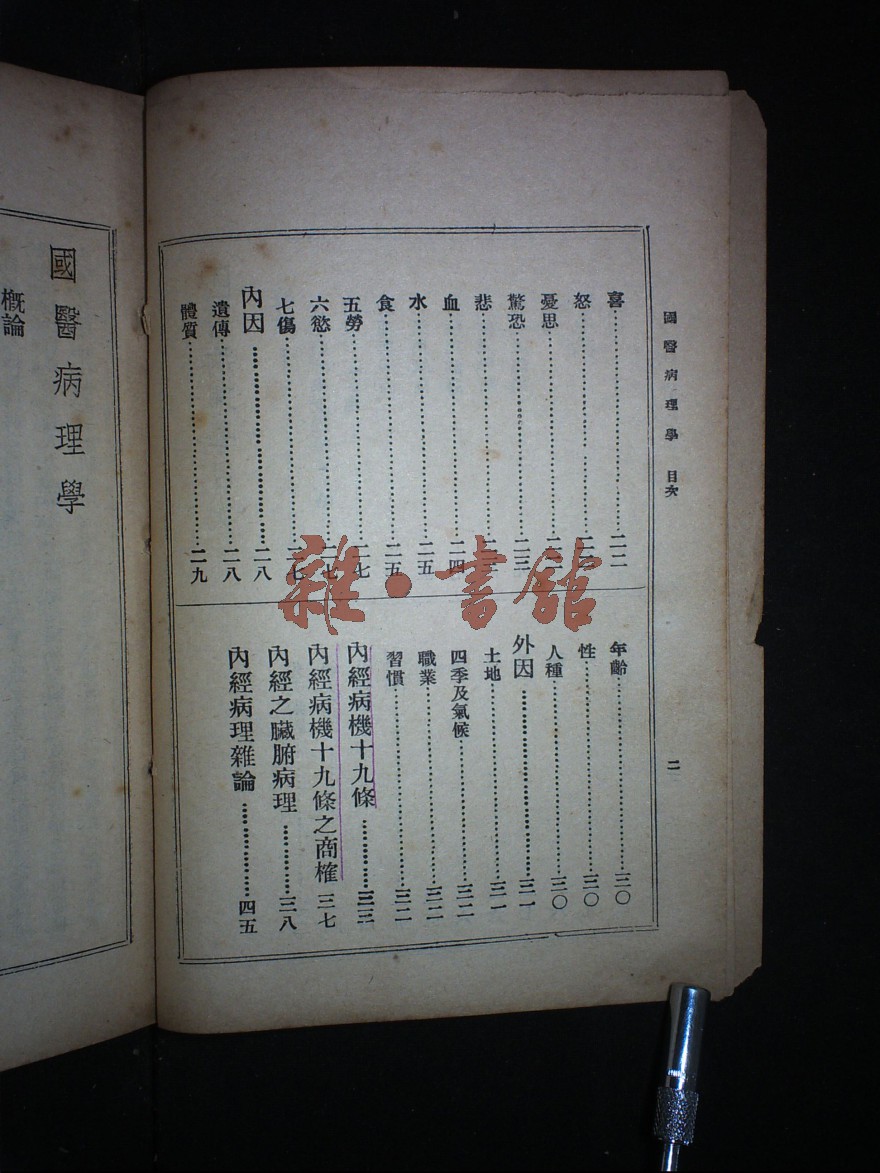 國醫病理學 目次
二
喜……二二
怒……
憂思……
驚恐……二三
悲……
血……二四
水……二五
食……二五
五勞……二七
六慾……二七
七傷……二七
內因……二八
遺傳……二八
體質……二九
年齡……三〇
性……三〇
人種……三〇
外因……三一
土地……三一
四季及氣候……三二
職業……三二
習慣……三二
內經病機十九條……三三
內經病機十九條之商榷 三七
內經之臟腑病理……三八
內經病理雜論……四五
國醫病理學
概論
雜·書館